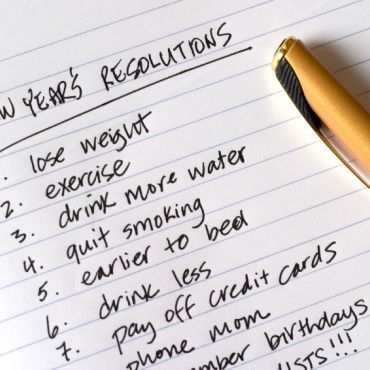 W YEAR'S RESOLUTIONS
. lose weight
2. exercise
3. drink more water
4. quit smoking
5. earlier to bed
6. drink less
7. pay off credit cards
phone mom
mber birthdays
ISTS!!!